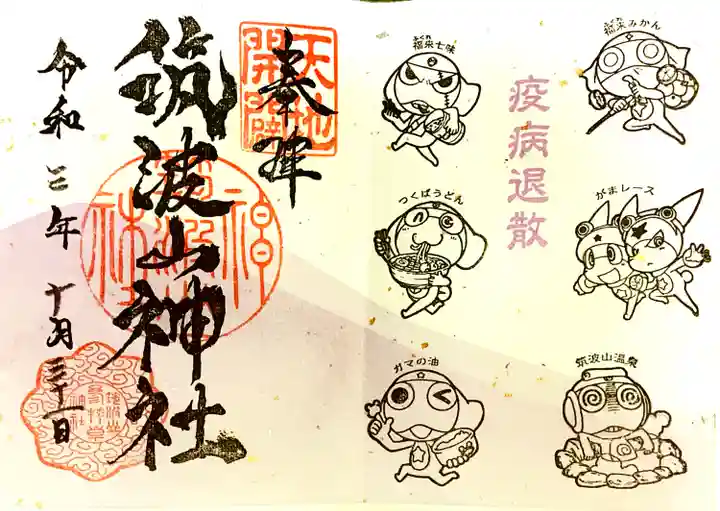 福来みかん
ふくれ
疫病退散
福来七味
ふくれ
がまレース
つくばうどん
筑波山温泉
ガマの油
天地
開闢
奉拝
筑波山神社
令和三年十月三十一日